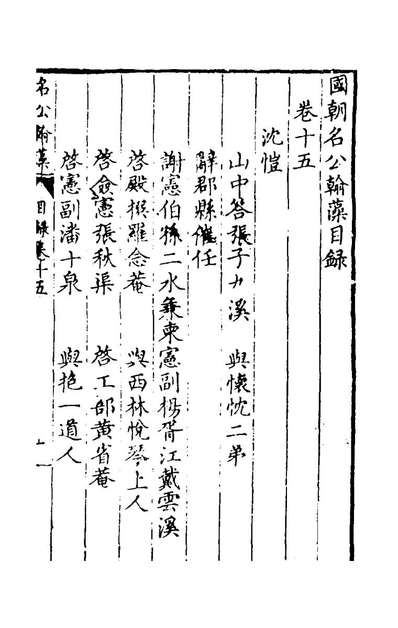 國朝名公翰藻目録
卷十五
沈愷
山中答張子九溪 與懷忱二弟
辭郡縣催任
謝憲伯孫二水兼柬憲副楊胥江戴雲溪
啓殿撰羅念菴 與西林悅琴上人
啓僉憲張秋渠 啓工部黄省菴
啓憲副潘十泉 與抱一道人
名公翰藻 目録卷十五